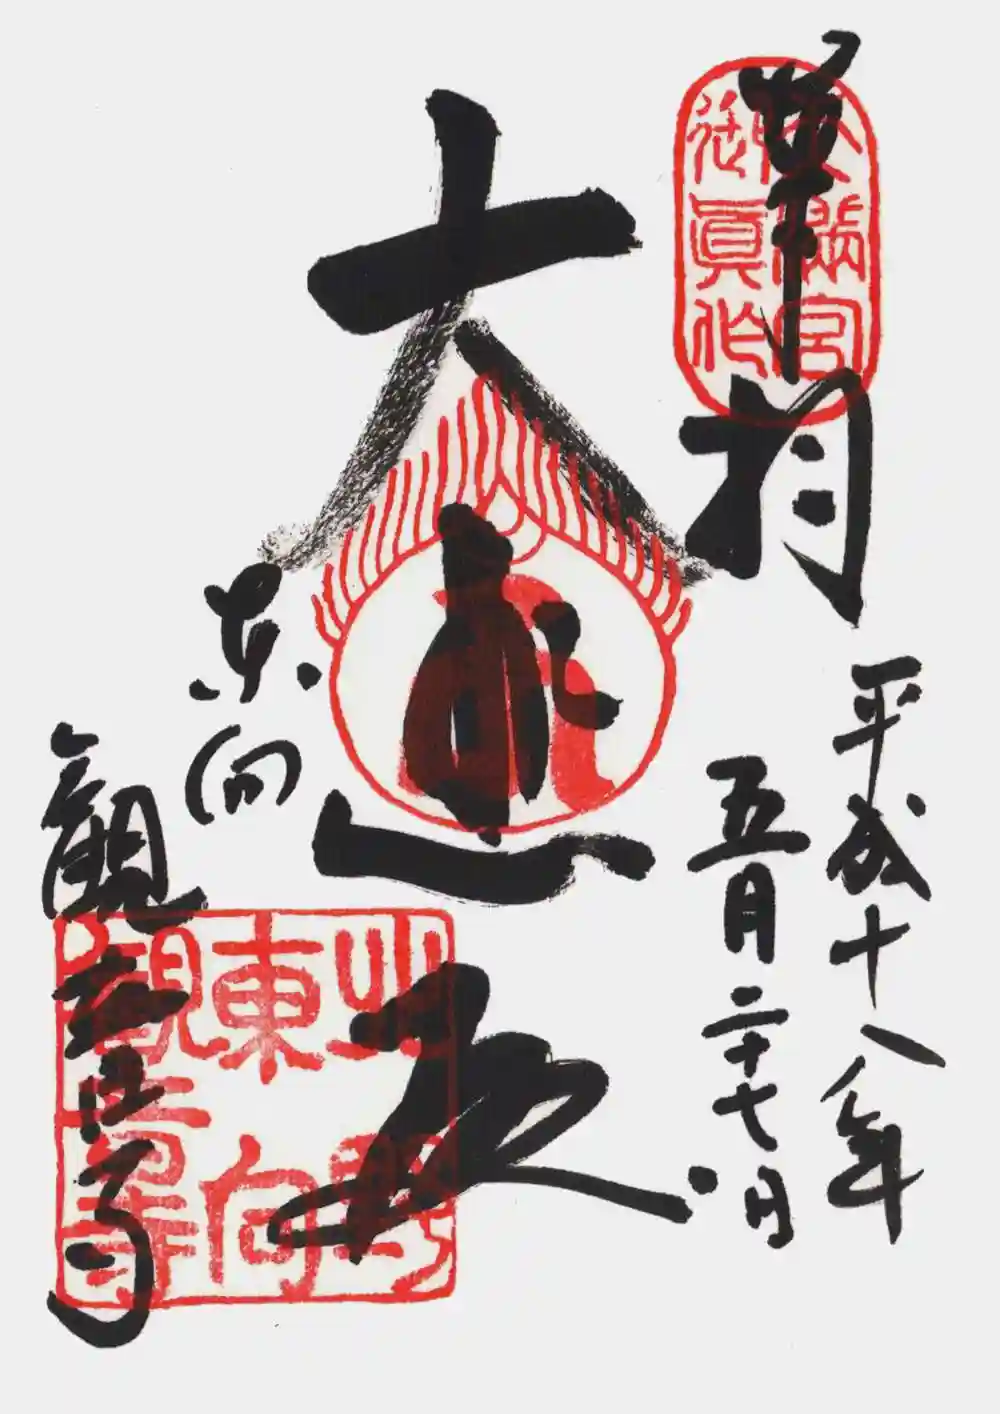 奉拝
天満宮
御眞作
平成十八年
五月二十七日
大悲殿
東向
観音寺
北野
東向
觀音寺